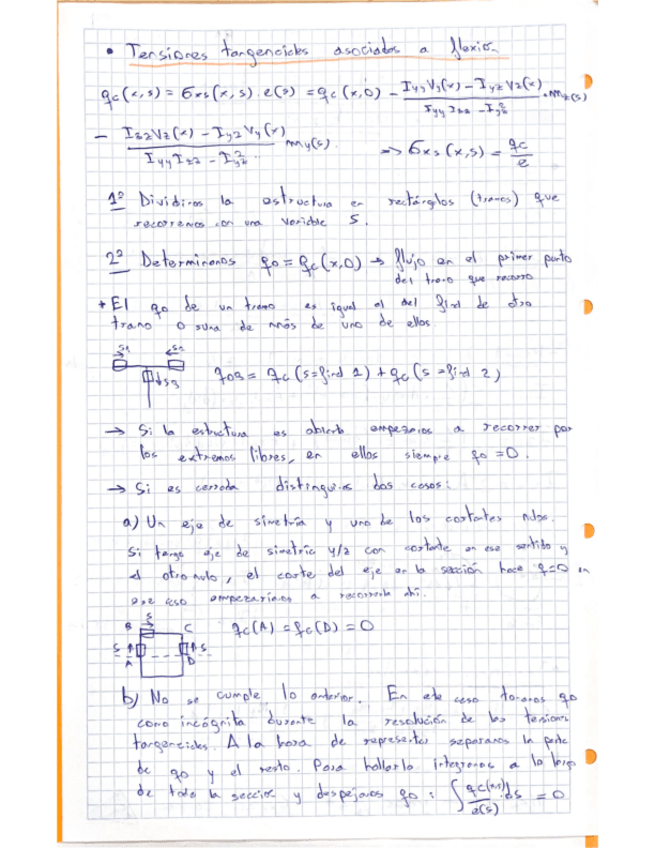 • Tensiones tangenciales asociadas a flexión
qc(x,s) = σxs(x,s) · e(s) = qc(x,0) - (IyyVy(x) - IyzVz(x))/(IyyIzz - Iyz²) · mz(s)
- (IzzVz(x) - IyzVy(x))/(IyyIzz - Iyz²) my(s). => σxs(x,s) = qc/e
1º Dividimos la estructura en rectángulos (tramos) que
recorremos con una variable S.
2º Determinamos q0 = qc(x,0) → flujo en el primer punto
del tramo que recorro
* El q0 de un tramo es igual al del final de otro
tramo o suma de más de uno de ellos.
S1 S2
↓S3 q03 = qc(s=final 1) + qc(s=final 2)
→ Si la estructura es abierta empezamos a recorrer por
los extremos libres, en ellos siempre q0 = 0.
→ Si es cerrada distinguimos dos casos:
a) Un eje de simetría y uno de los cortantes nulos.
Si tengo eje de simetría y/z con cortante en ese sentido y
el otro nulo, el corte del eje en la sección hace q=0 en
ese caso empezaríamos a recorrerla ahí.
S
B C qc(A) = qc(D) = 0
S ↑ ↑ S
A D
b) No se cumple lo anterior. En este caso tomamos q0
como incógnita durante la resolución de las tensiones
tangenciales. A la hora de representar separamos la parte
de q0 y el resto. Para hallarlo integramos a lo largo
de toda la sección y despejamos q0 : ∫ qc(x,s)/e(s) ds = 0